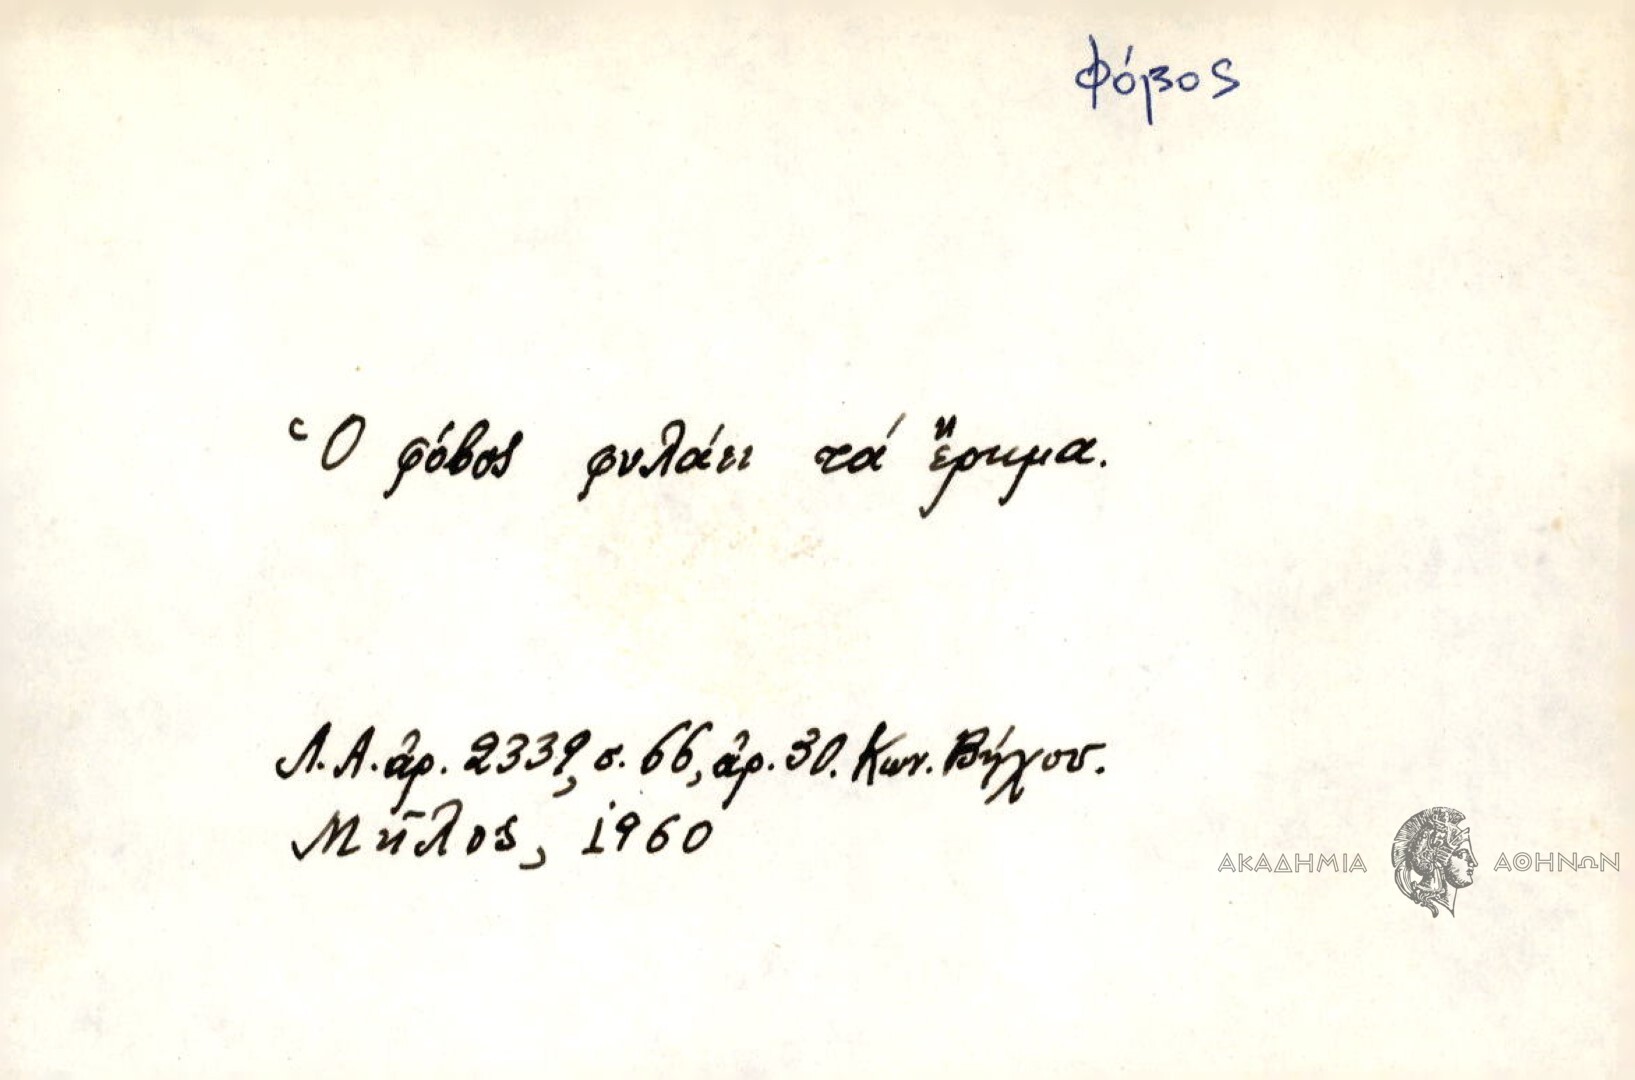 Φόβος
Ὁ φόβος φυλάει τά ἔρημα.
Λ.Α. ἀρ. 2339, σ. 66, ἀρ. 30. Κων. Βήχου.
Μῆλος, 1960
ΑΚΑΔΗΜΙΑ ΑΘΗΝΩΝ